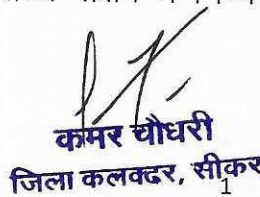 कमर चौधरी
जिला कलक्टर, सीकर
1